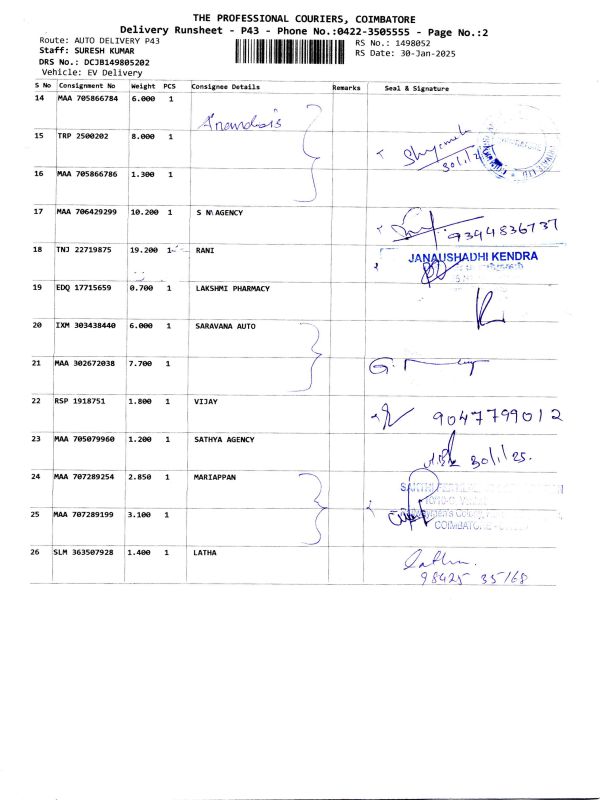 THE PROFESSIONAL COURIERS, COIMBATORE
Delivery Runsheet - P43 - Phone No.:0422-3505555 - Page No.:2
Route: AUTO DELIVERY P43
RS No.: 1498052
Staff: SURESH KUMAR
RS Date: 30-Jan-2025
DRS No.: DCJB149805202
Vehicle: EV Delivery
S No Consignment No Weight PCS Consignee Details Remarks Seal & Signature
14 MAA 705866784 6.000 1
15 TRP 2500202 8.000 1
16 MAA 705866786 1.300 1
17 MAA 706429299 10.200 1 S N\AGENCY
9394836737
18 TNJ 22719875 19.200 1 RANI
JANAUSHADHI KENDRA
19 EDQ 17715659 0.700 1 LAKSHMI PHARMACY
20 IXM 303438440 6.000 1 SARAVANA AUTO
21 MAA 302672038 7.700 1
22 RSP 1918751 1.800 1 VIJAY
9047799012
23 MAA 705079960 1.200 1 SATHYA AGENCY
30/1/25.
24 MAA 707289254 2.850 1 MARIAPPAN
25 MAA 707289199 3.100 1
COIMBATORE
26 SLM 363507928 1.400 1 LATHA
Latha.
98425 35168